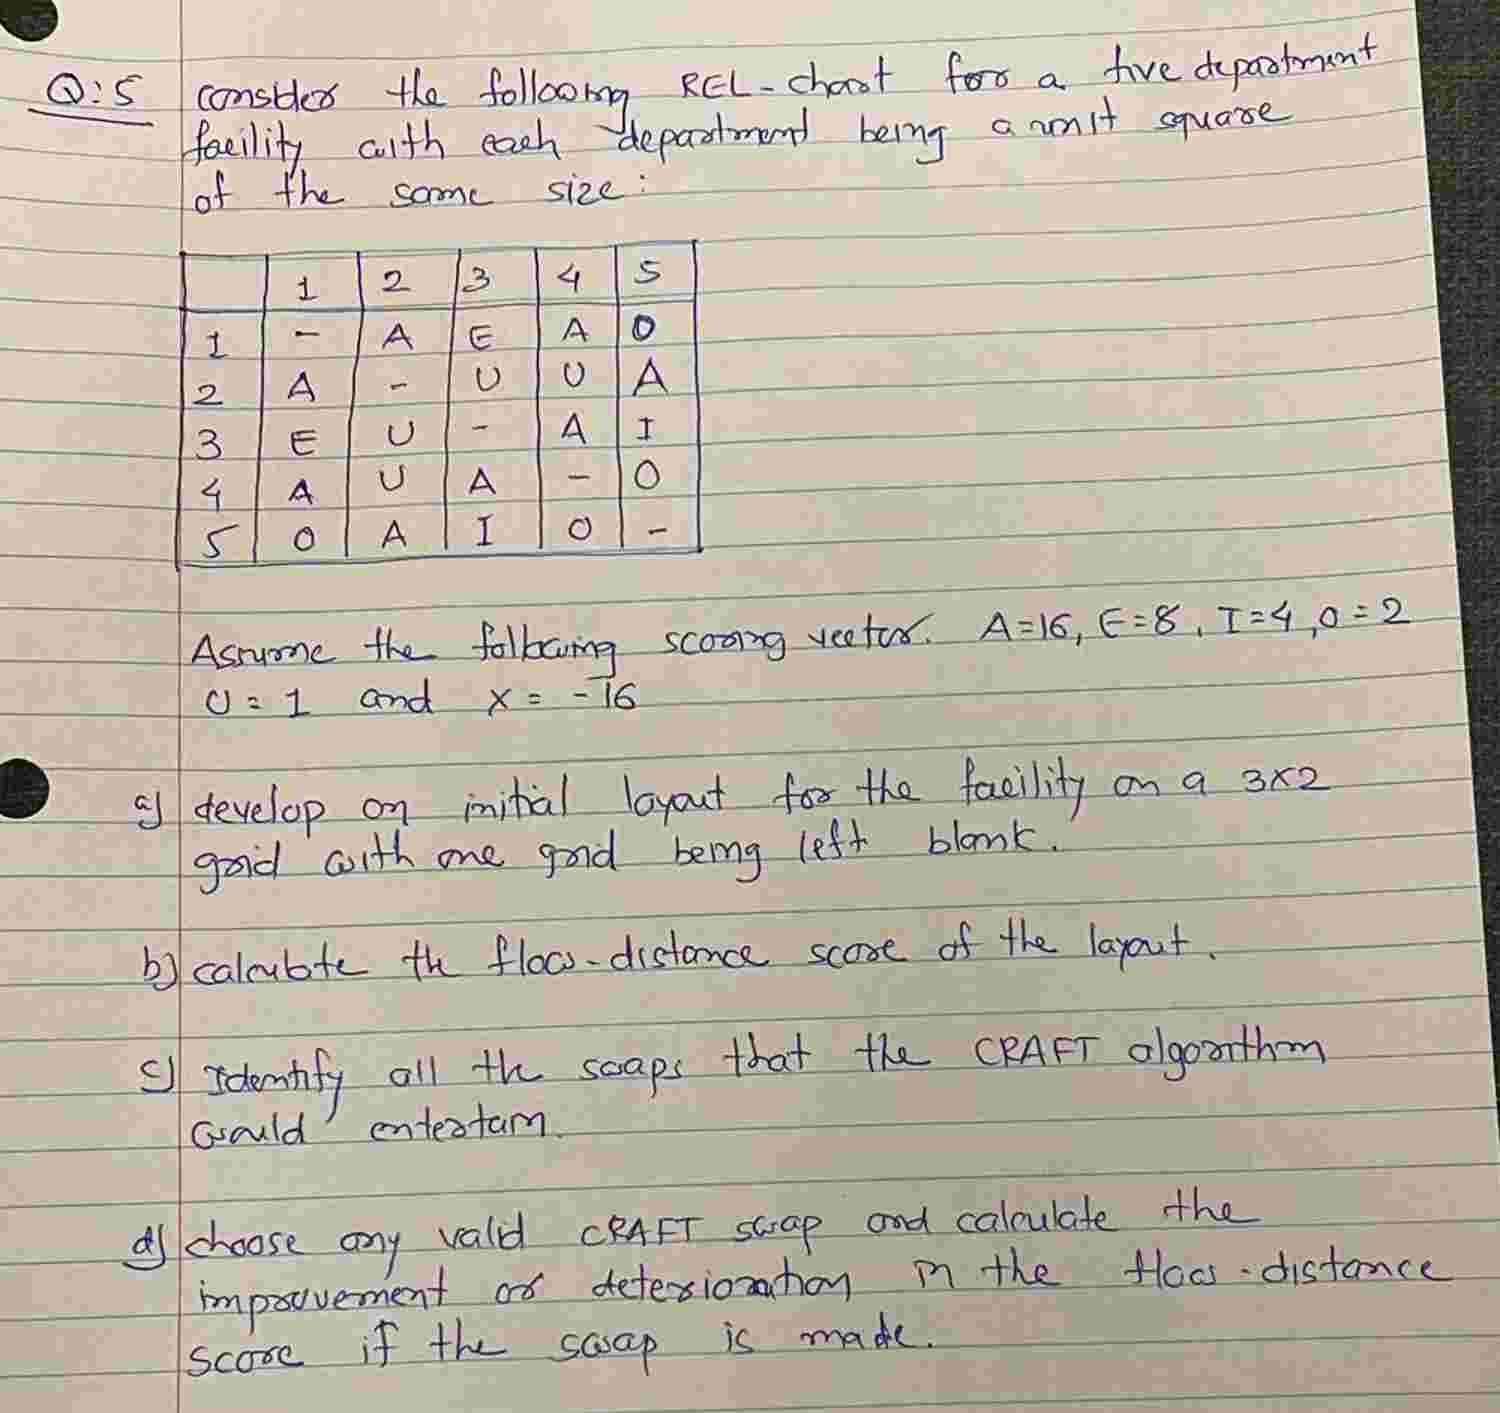 Q:5 consider the following REL-chart for a five department
facility with each department being a unit square
of the same size:
1 2 3 4 5
1 - A E A O
2 A - U U A
3 E U - A I
4 A U A - O
5 O A I O -
Assume the following scoring vector. A=16, E=8, I=4, O=2
U=1 and X=-16
a) develop an initial layout for the facility on a 3x2
grid with one grid being left blank.
b) calculate the flow-distance score of the layout.
c) Identify all the swaps that the CRAFT algorithm
would entertain.
d) choose any valid CRAFT swap and calculate the
improvement or deterioration in the flow-distance
score if the swap is made.